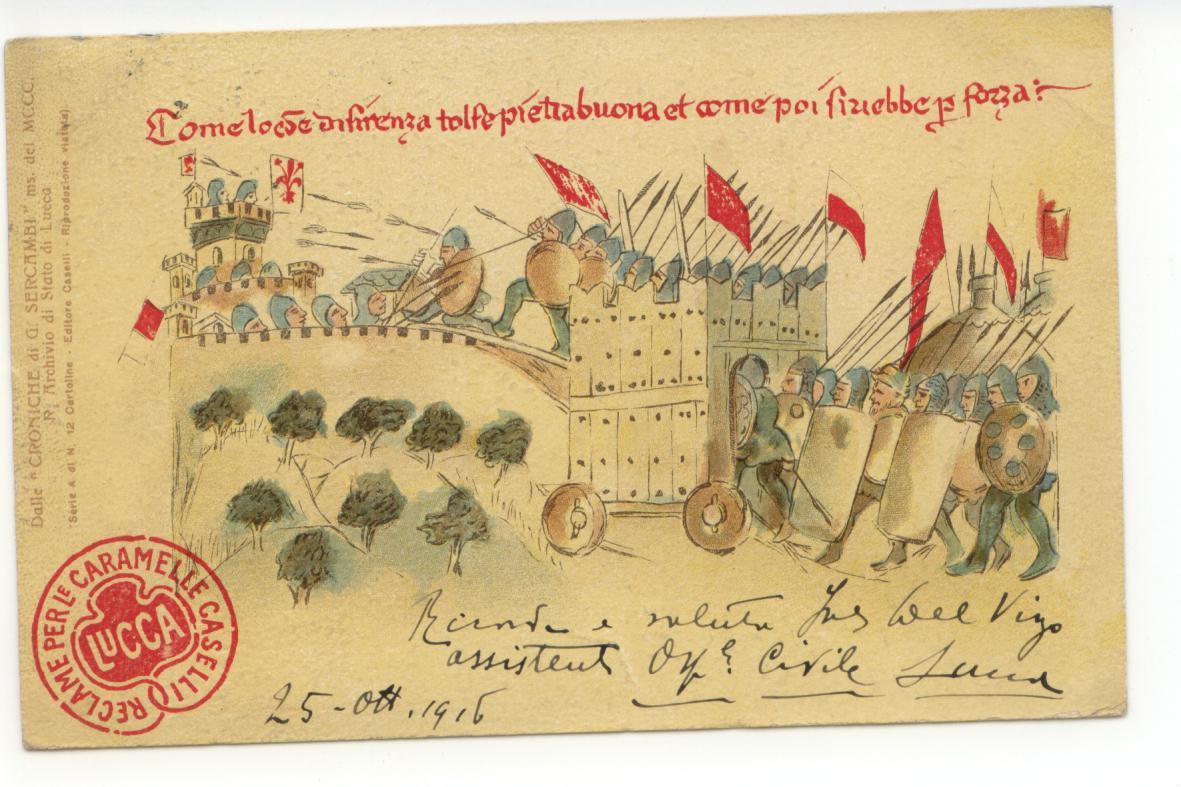 Come locōe difirenza tolse pietrabuona et come poi siriebbe p̱ forza:
Dalle " CRONICHE di G. SERCAMBI " ms. del MCCC.
R. Archivio di Stato di Lucca
(Serie A di N. 12 Cartoline - Editore Caselli - Riproduzione vietata)
RECLAME PER LE CARAMELLE CASELLI
LUCCA
Ricorda e saluta Del Vigo
assistente Osp.le Civile Lucca
25 - Ott. 1916